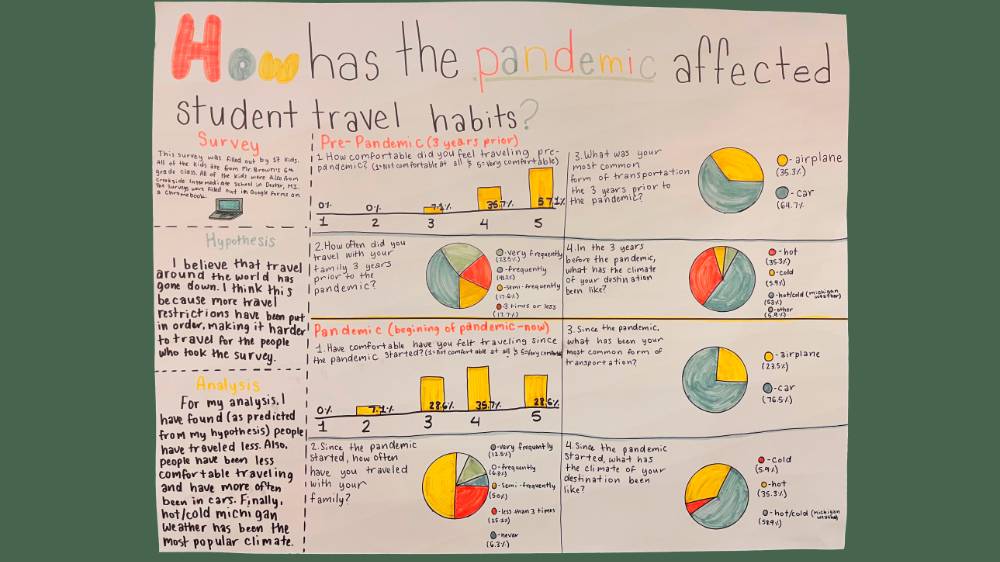 How has the pandemic affected
student travel habits?
Survey
This survey was filled out by 17 kids.
All of the kids are from Mr. Brown's 6th
grade class. All of the kids were also from
Creekside Intermediate School in Dexter, MI.
The surveys were filled out in Google Forms on
a Chromebook.
Hypothesis
I believe that travel
around the world has
gone down. I think this
because more travel
restrictions have been put
in order, making it harder
to travel for the people
who took the survey.
Analysis
For my analysis, I
have found (as predicted
from my hypothesis) people
have traveled less. Also,
people have been less
comfortable traveling
and have more often
been in cars. Finally,
hot/cold michigan
weather has been the
most popular climate.
Pre-Pandemic (3 years prior)
1. How comfortable did you feel traveling pre-
pandemic? (1=not comfortable at all & 5=very comfortable)
0% 0% 7.1% 35.7% 57.1%
1 2 3 4 5
3. What was your
most common
form of transportation
the 3 years prior to
the pandemic?
-airplane
(35.3%)
-car
(64.7%)
2. How often did you
travel with your
family 3 years
prior to the
pandemic?
-very frequently
-frequently
-semi-frequently
(17.6%)
-3 times or less
(17.7%)
4. In the 3 years
before the pandemic,
what has the climate
of your destination
been like?
-hot
(35.3%)
-cold
(5.9%)
-hot/cold (michigan
weather)
(53%)
-other
Pandemic (begining of pandemic-now)
1. Have comfortable have you felt traveling since
the pandemic started? (1=not comfortable at all & 5=very comfortable)
0% 7.1% 28.6% 35.7% 28.6%
1 2 3 4 5
3. Since the pandemic,
what has been your
most common form of
transportation?
-airplane
(23.5%)
-car
(76.5%)
2. Since the pandemic
started, how often
have you traveled
with your
family?
-very frequently
(12.5%)
-frequently
-semi-frequently
(50%)
-less than 3 times
-never
(6.3%)
4. Since the pandemic
started, what has
the climate of your
destination been
like?
-cold
(5.9%)
-hot
(35.3%)
-hot/cold (michigan
weather)
(58.9%)